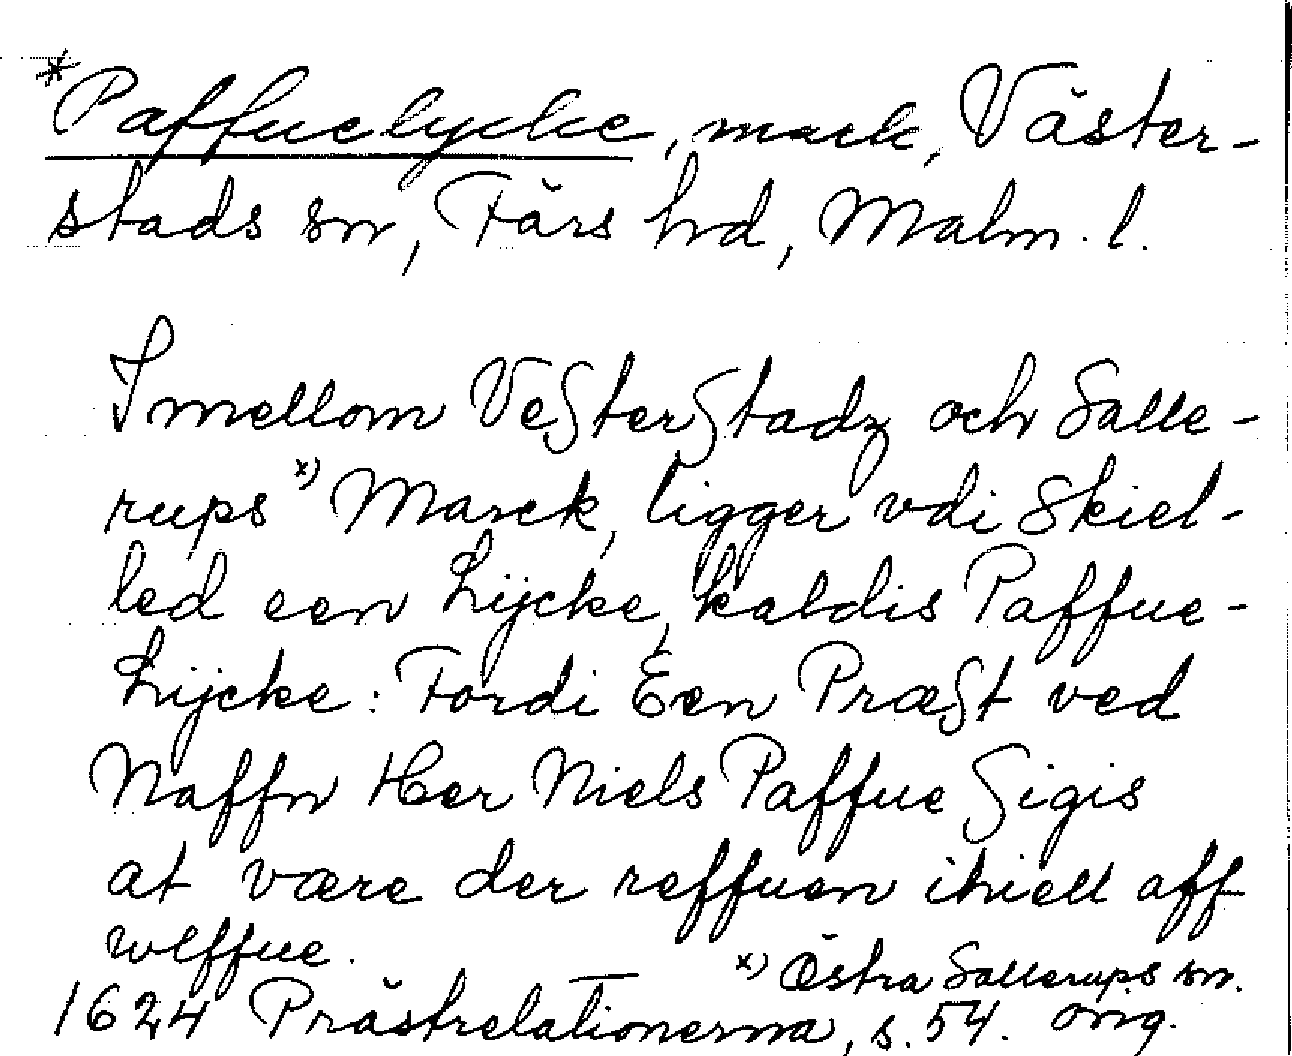 *Paffuelycke, mark, Väster-
stads sn, Färs hd, Malm. l.
Imellom VeSterStadz och Salle-
rups x) Marck, ligger vdi Skiel-
led een Lijcke, kaldis Paffue-
Lijcke: Fordi Een PræSt ved
Naffn Her Niels Paffue Sigis
at være der reffuen ihiell aff
wlffue.
x) Östra Sallerups sn.
1624 Prästrelationerna, s. 54. orig.